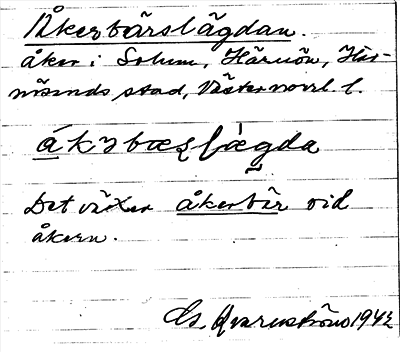 Åkerbärslägdan.
åker i Solum, Härnön, Här-
nösands stad, Västernorrl. l.
Det växer åkerbär vid
åkern.
Qvarnström 1942